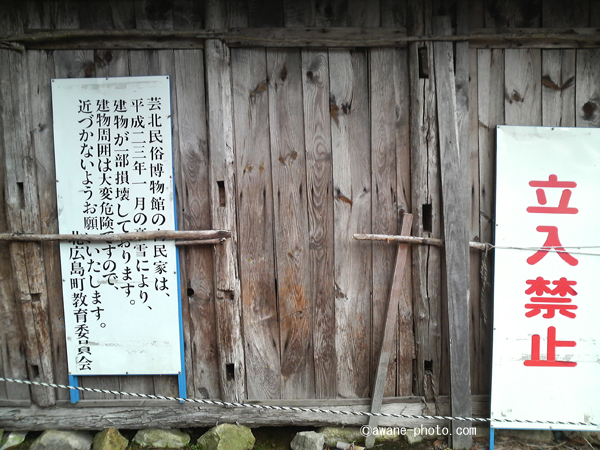 芸北民俗博物館の民家は、
平成二三年一月の豪雪により、
建物が一部損壊しております。
建物周囲は大変危険ですので、
近づかないようお願いいたします。
北広島町教育委員会
立入禁止
©awane-photo.com